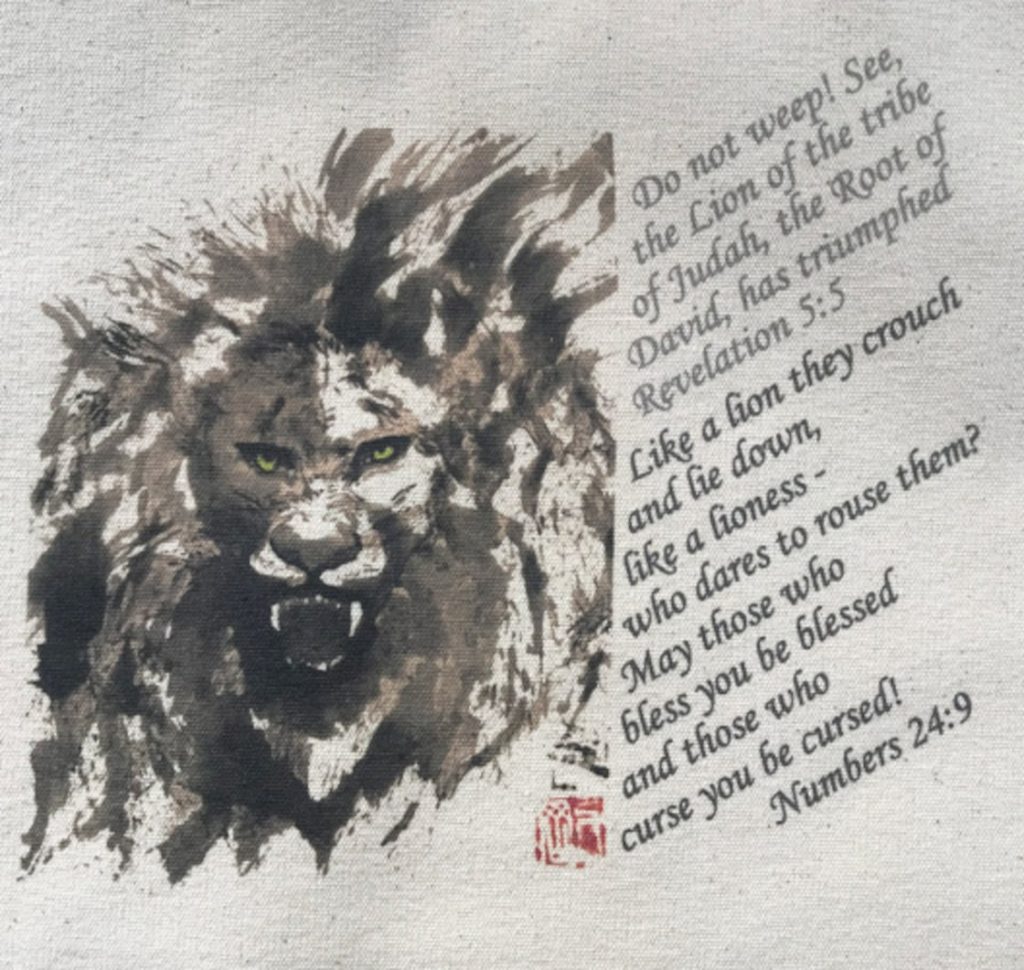 Do not weep! See,
the Lion of the tribe
of Judah, the Root of
David, has triumphed
Revelation 5:5
Like a lion they crouch
and lie down,
like a lioness -
who dares to rouse them?
May those who
bless you be blessed
and those who
curse you be cursed!
Numbers 24:9